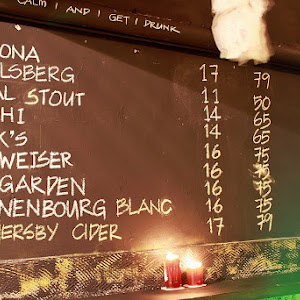 CALM I AND I GET I DRUNK
ONA
LSBERG 17 79
AL STOUT 11 50
HI 14 65
K'S 14 65
WEISER 16 75
GARDEN 16 75
NENBOURG BLANC 16 75
ERSBY CIDER 17 79